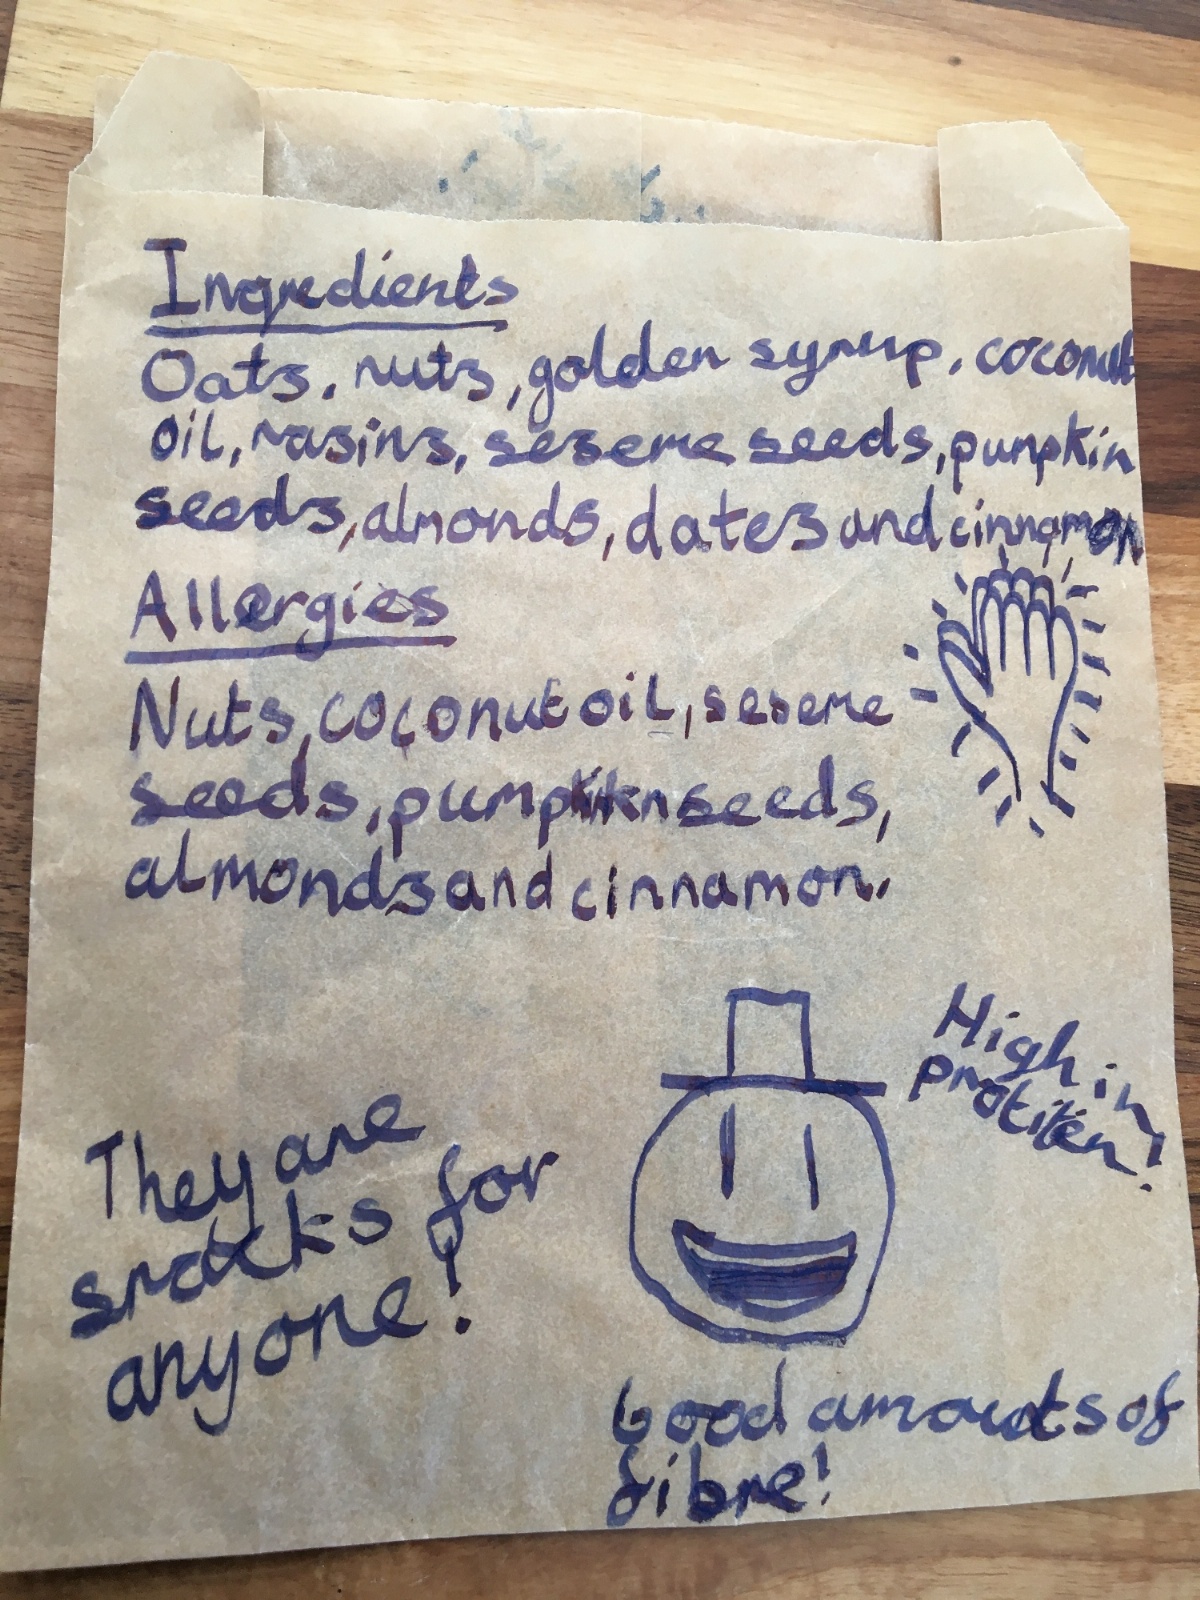 Ingredients
Oats, nuts, golden syrup, coconut
oil, rasins, seseme seeds, pumpkin
seeds, almonds, dates and cinnamon
Allergies
Nuts, coconut oil, seseme
seeds, pumpkin seeds,
almonds and cinnamon.
High in
protien!
They are
snacks for
anyone!
Good amounts of
fibre!